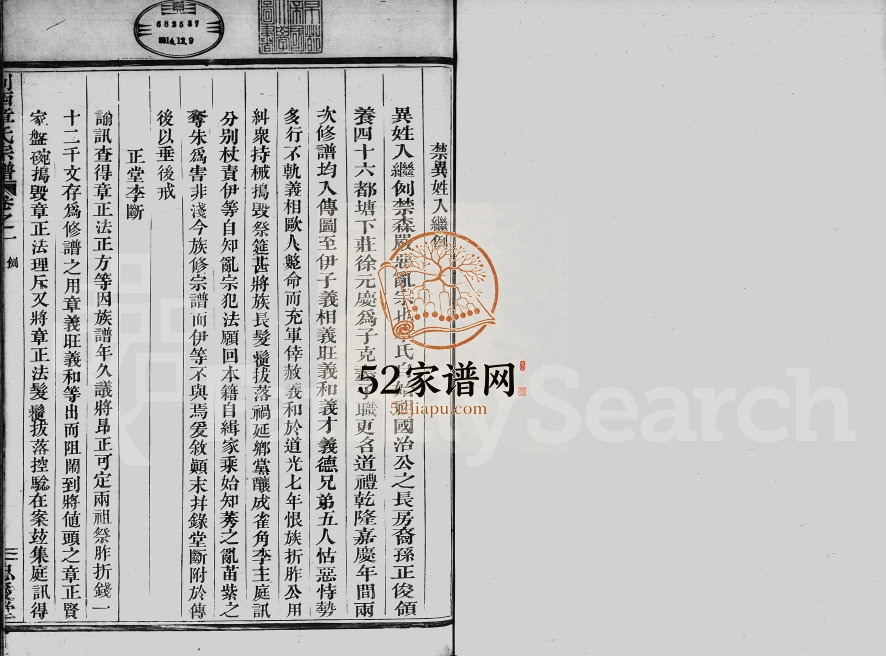 682587
2014.12.9
禁異姓入繼例
異姓入繼例禁森嚴惡亂宗也 氏 始祖國治公之長房裔孫正俊領
養四十六都塘下莊徐元慶爲子克 子職更名道禮乾隆嘉慶年間兩
次修譜均入傳圖至伊子義相義旺義和義才義德兄弟五人怙惡恃勢
多行不軌義相歐人斃命而充軍倖赦義和於道光七年恨族折胙公用
糾衆持械搗毀祭筵甚將族長髮鬚拔落禍延鄉黨釀成雀角李主庭訊
分别杖責伊等自知亂宗犯法願回本籍自緝家乘始知莠之亂苗紫之
奪朱爲害非淺今族修宗譜而伊等不與焉爰敘顛末幷錄堂斷附於傳
後以垂後戒
正堂李斷
諭訊查得章正法正方等因族譜年久議將昂正可定兩祖祭胙折錢一
十二千文存爲修譜之用章義旺義和等出而阻鬧到將値頭之章正賢
家盤碗搗毀章正法理斥又將章正法髮鬚拔落控驗在案玆集庭訊得
西章氏宗譜 卷之一 例
52家谱网
52jiapu.com
FamilySearch